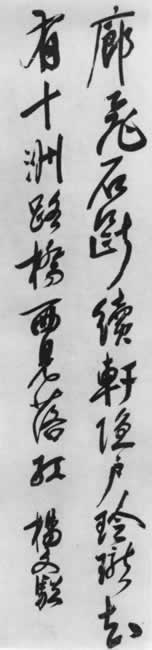 廊危石斷續軒隱戶玲瓏去
有十洲路橋西見落紅 楊文驄